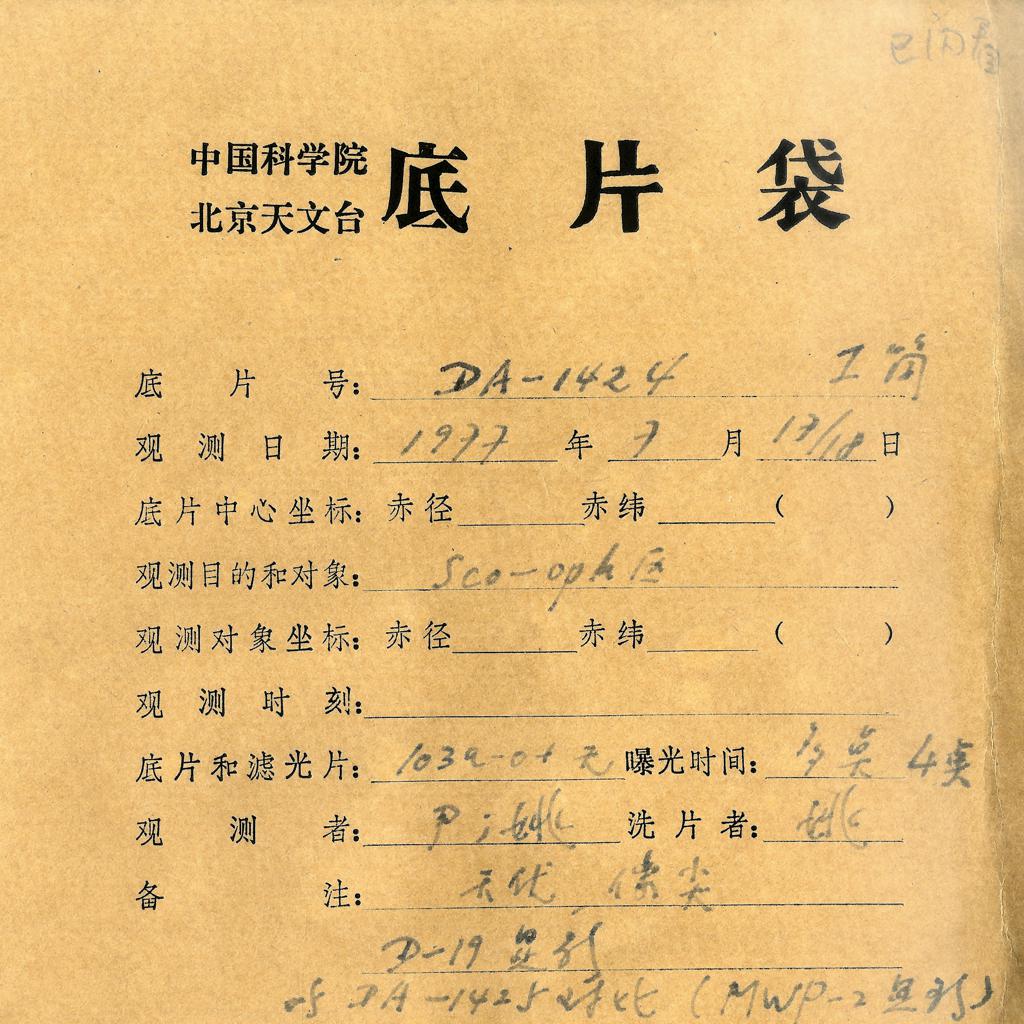 已闪看
中国科学院
北京天文台
底片袋
底片号: DA-1424 工筒
观测日期: 1977年7月17/18日
底片中心坐标: 赤径 赤纬 ( )
观测目的和对象: Sco-oph区
观测对象坐标: 赤径 赤纬 ( )
观测时刻:
底片和滤光片: 103a-O+无 曝光时间: 4
观测者: P;姚 洗片者: 姚
备注: 天优,像尖
D-19显影
与DA-1425对比(MWP-2显影)